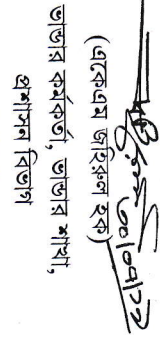 (একেএম জহিরুল হক)
ভান্ডার কর্মকর্তা, ভান্ডার শাখা,
প্রশাসন বিভাগ